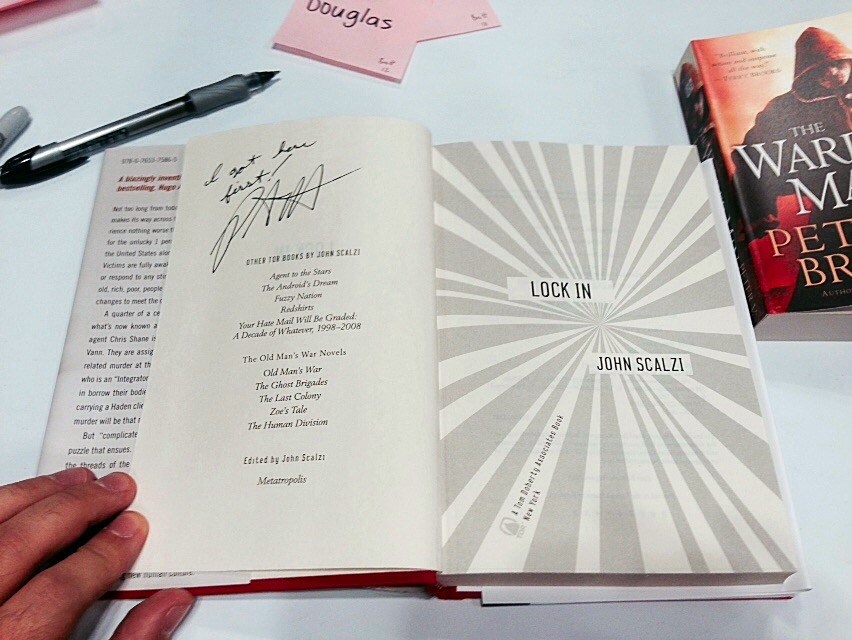 Douglas
978-0-7653-7586-5
A blazingly inventi
bestselling, Hugo A
Not too long from toda
makes its way across
rience nothing worse t
for the unlucky 1 per
the United States alon
Victims are fully awa
or respond to any sti
old, rich, poor, people
changes to meet the c
A quarter of a ce
what's now known a
agent Chris Shane is
Vann. They are assig
related murder at th
who is an "Integrator
in borrow their bodie
carrying a Haden clie
murder will be that r
But "complicate
puzzle that ensues.
the threads of the
new human culture.
I got here
first!
OTHER TOR BOOKS BY JOHN SCALZI
Agent to the Stars
The Android's Dream
Fuzzy Nation
Redshirts
Your Hate Mail Will Be Graded:
A Decade of Whatever, 1998–2008
The Old Man's War Novels
Old Man's War
The Ghost Brigades
The Last Colony
Zoe's Tale
The Human Division
Edited by John Scalzi
Metatropolis
LOCK IN
JOHN SCALZI
A Tom Doherty Associates Book
New York
TOR
"Brilliant, with
TERRY BROOKS
THE
WAR
MA
PET
BR
AUTHO